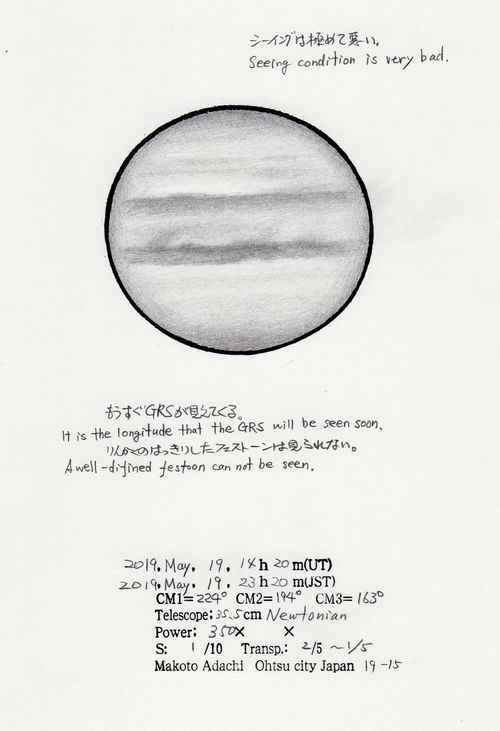 シーイングは極めて悪い。
Seeing condition is very bad.
もうすぐGRSが見えてくる。
It is the longitude that the GRS will be seen soon.
りんかくのはっきりしたフェストーンは見られない。
A well-difined festoon can not be seen.
2019. May. 19. 14 h 20 m(UT)
2019. May. 19. 23 h 20 m(JST)
CM1= 224° CM2= 194° CM3= 163°
Telescope: 35.5 cm Newtonian
Power: 350× ×
S: 1 /10 Transp.: 2/5 ~1/5
Makoto Adachi Ohtsu city Japan 19-15